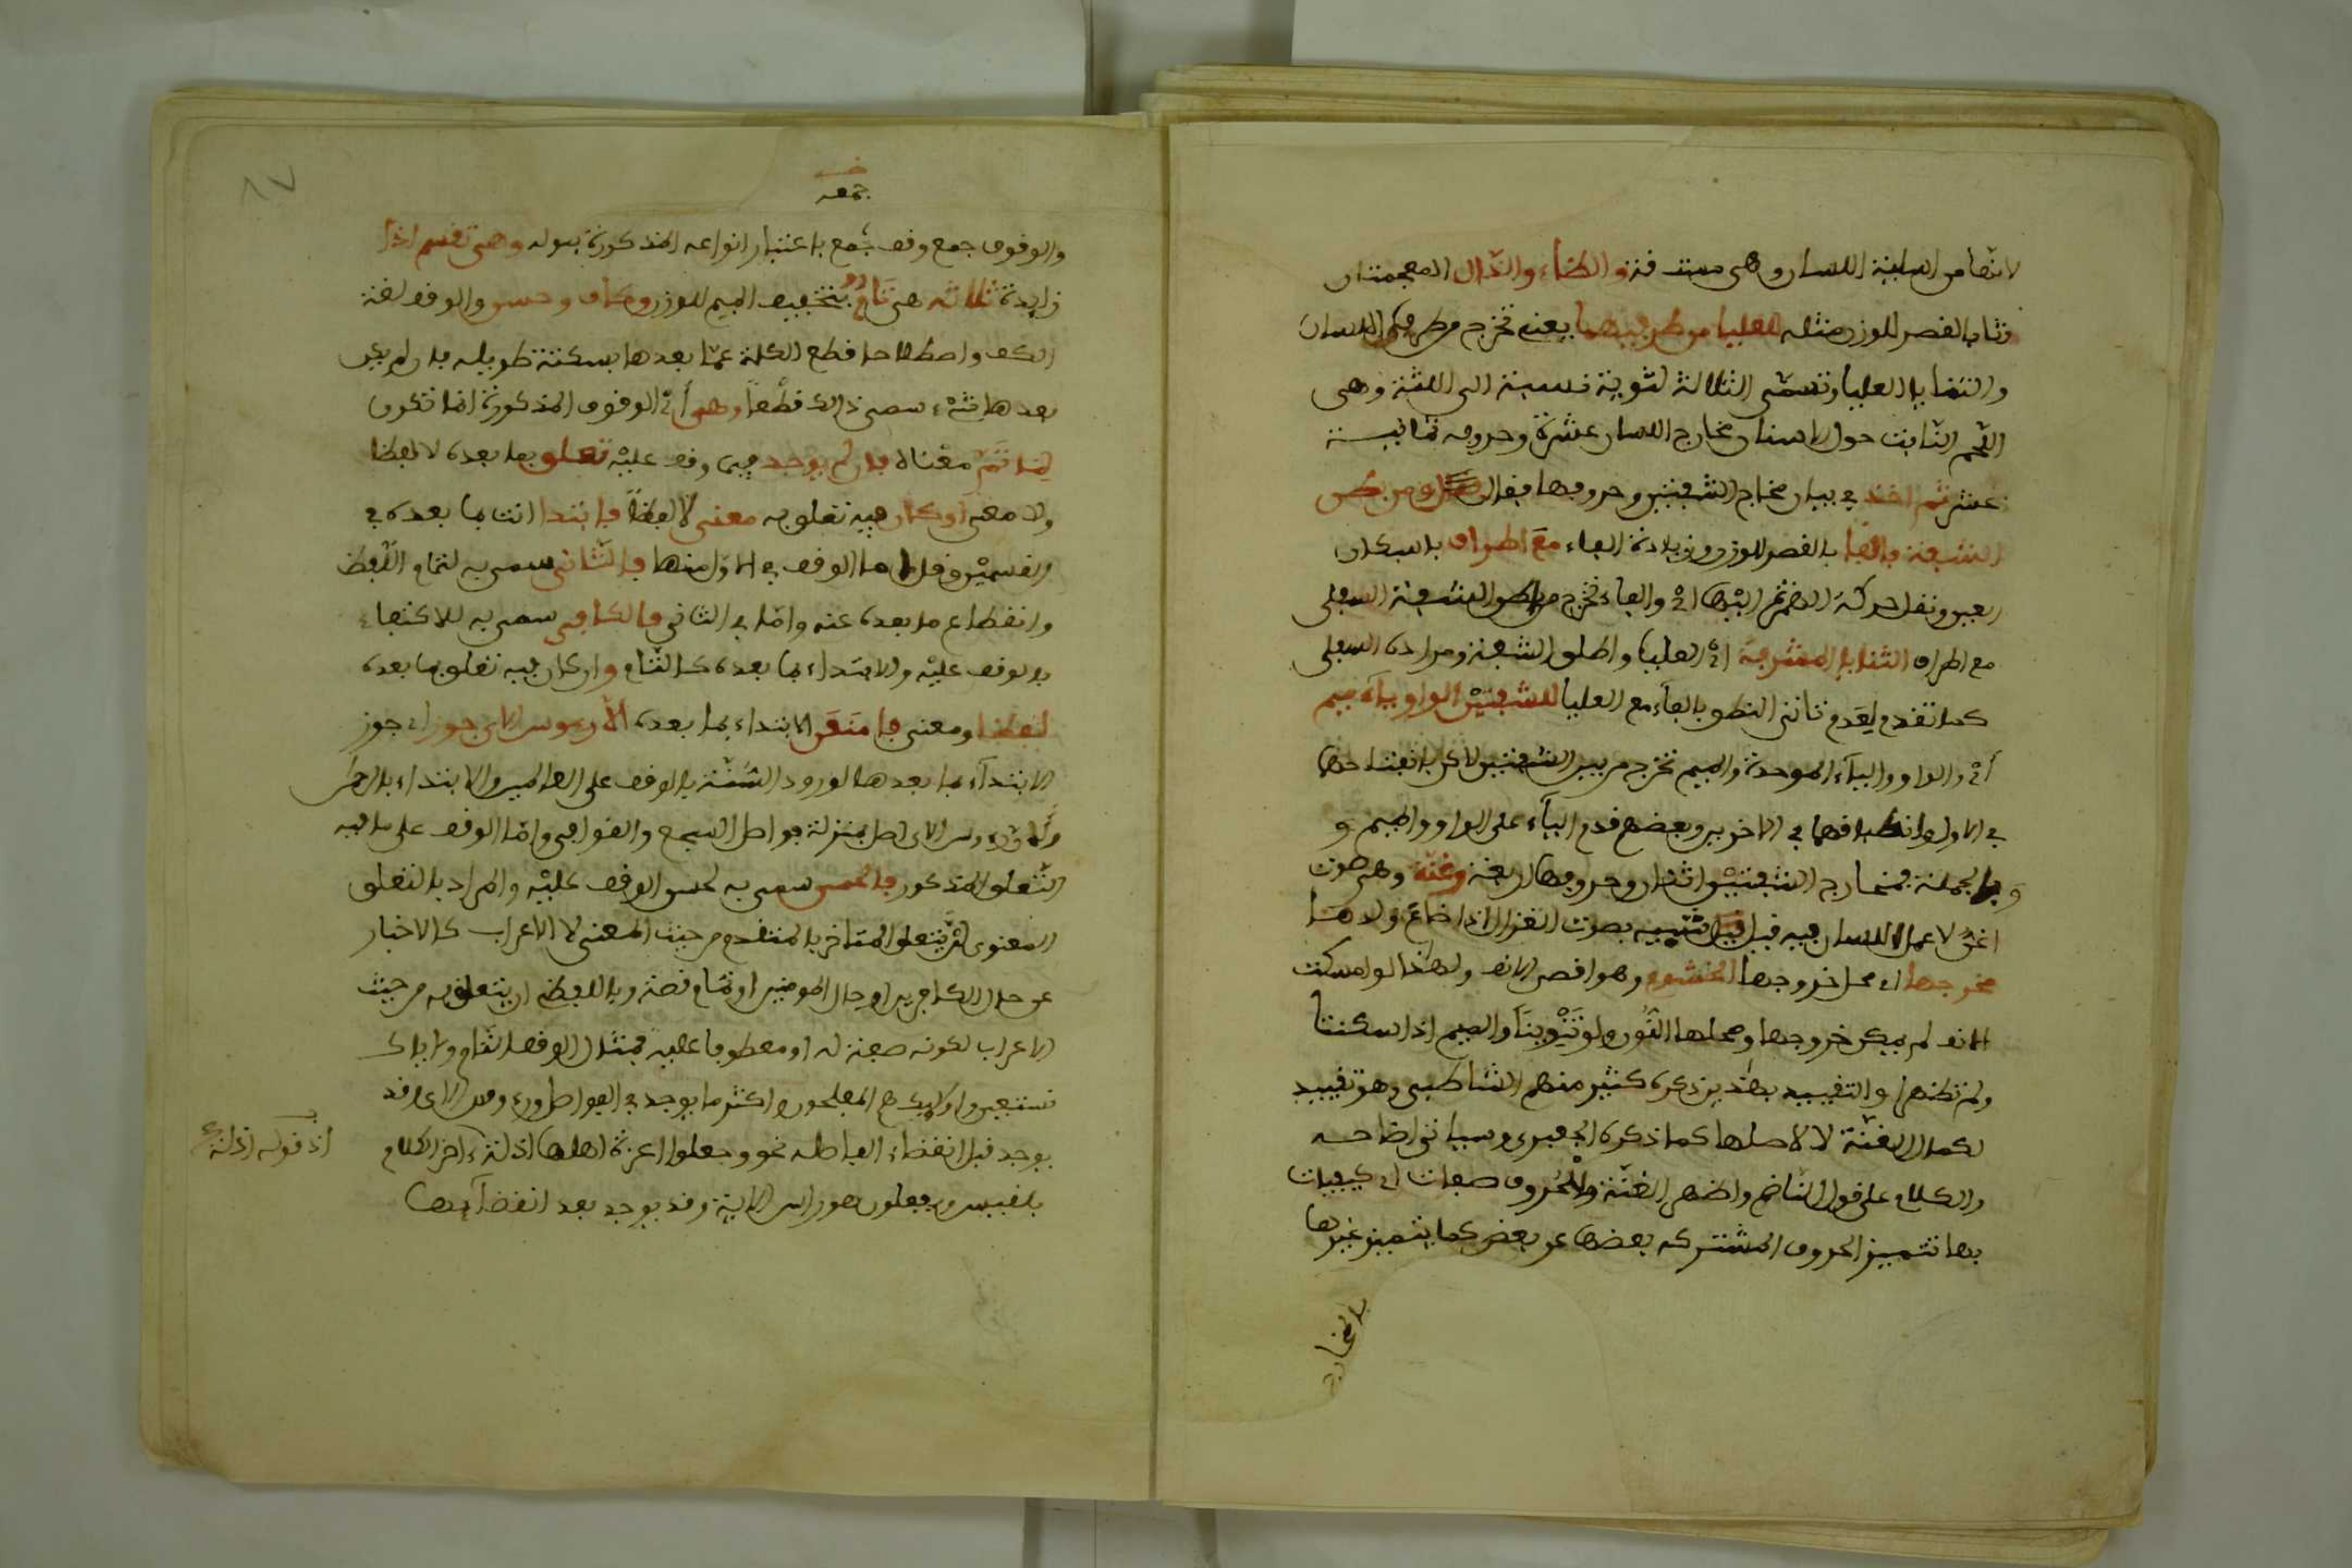 لانها من اسلة اللسان وهي مستدقه والظاء والذال المعجمتان
وثا بالقصر للوزن مثله للعليا من طرفيهما يعني تخرج من طرفي اللسان
والثنايا العليا وتسمى الثلاثة لثوية نسبة الى اللثة وهي
اللحم النابت حول الاسنان مخارج اللسان عشرة وحروفه ثمانية
عشر ثم اخذ في بيان مخارج الشفتين وحروفها فقال ومن بطن
الشفه فالفا بالقصر للوزن وزيادة الفاء مع اطراف باسكان
العين ونقل حركة الهمزة اليها اي والفاء تخرج من بطن الشفة السفلى
مع اطراف الثنايا المشرفة اي العليا واطلق الشفة ومراده السفلى
كما تقدم لعدم تاتي النطق بالفاء مع العليا للشفتين الواو باء ميم
اي والواو والباء الموحدة والميم تخرج من بين الشفتين لاكن بانفتاحها
في الاول وانطباقهما في الاخرين وبعضهم قدم الباء على الواو والميم و
وبالجملة فمخارج الشفتين اثنان وحروفها اربعة وغنة وهي صوت
اغن لا عمل للسان فيه قيل شبيه بصوت الغزال اذا ضاع ولدها
مخرجها اي محل خروجها الخيشوم وهو اقصى الانف ولهذا لو امسكت
الانف لم يمكن خروجها ومحلها النون ولو تنوينا والميم اذا سكنتا
ولم تظهرا والتقييد بهذين ذكره كثير منهم الشاطبي وهو تقييد
لكمال الغنة لا لاصلها كما ذكره الجعبري وسياتي ايضاحه
والكلام على قول الناظم واظهر الغنة وللحروف صفات اي كيفيات
بها تتميز الحروف المشتركه بعضها عن بعض كما يتميز غيرها
بالمخارج
جمعه
والوقوف جمع وقف جمع باعتبار انواعه المذكورة بقوله وهي تقسم اذا
زايدة ثلاثه هي تام بتخفيف الميم للوزن وكاف وحسن والوقف لغة
الكف واصطلاحا قطع الكلمة عما بعدها بسكتة طويله فان لم يكن
بعدها شيء سمي ذالك قطعا وهي اي الوقوف المذكورة انما تكون
لما تم معناه فان لم يوجد فيما وقف عليه تعلق بما بعده لا لفظا
ولا معنى او كان فيه تعلق به معنى لا لفظا فابتدا انت بما بعده في
القسمين وقل اما الوقف في الاول منها فالتام سمي به لتمام اللفظ
وانقطاع ما بعده عنه واما في الثاني فالكافي سمي به للاكتفاء
بالوقف عليه والابتداء بما بعده كالتام وان كان فيه تعلق بما بعده
لفظا ومعنى فامنعن الابتداء بما بعده الا رءوس الاي جوز اي جوز
الابتداء بما بعدها لورود السنة بالوقف على العالمين والابتداء بالرحمن
ولان رءوس الاي بمنزلة فواصل السجع والقوافي واما الوقف على ما فيه
التعلق المذكور فالحسن سمي به لحسن الوقف عليه والمراد بالتعلق
المعنوي ان يتعلق المتاخر بالمتقدم من حيث المعنى لا الاعراب كالاخبار
عن حال الكافرين او حال المومنين او تمام قصة وباللفظي ان يتعلق به من حيث
الاعراب لكونه صفة له او معطوفا عليه فمثال الوقف التام واياك
نستعين واولايك هم المفلحون واكثر ما يوجد في الفواصل ورءوس الاي وقد
يوجد قبل انقضاء الفاصله نحو وجعلوا اعزة اهلها اذلة ءاخر الكلام
بلقيس ويفعلون هو راس الاية وقد يوجد بعد انقضايها
اذ قوله اذلة